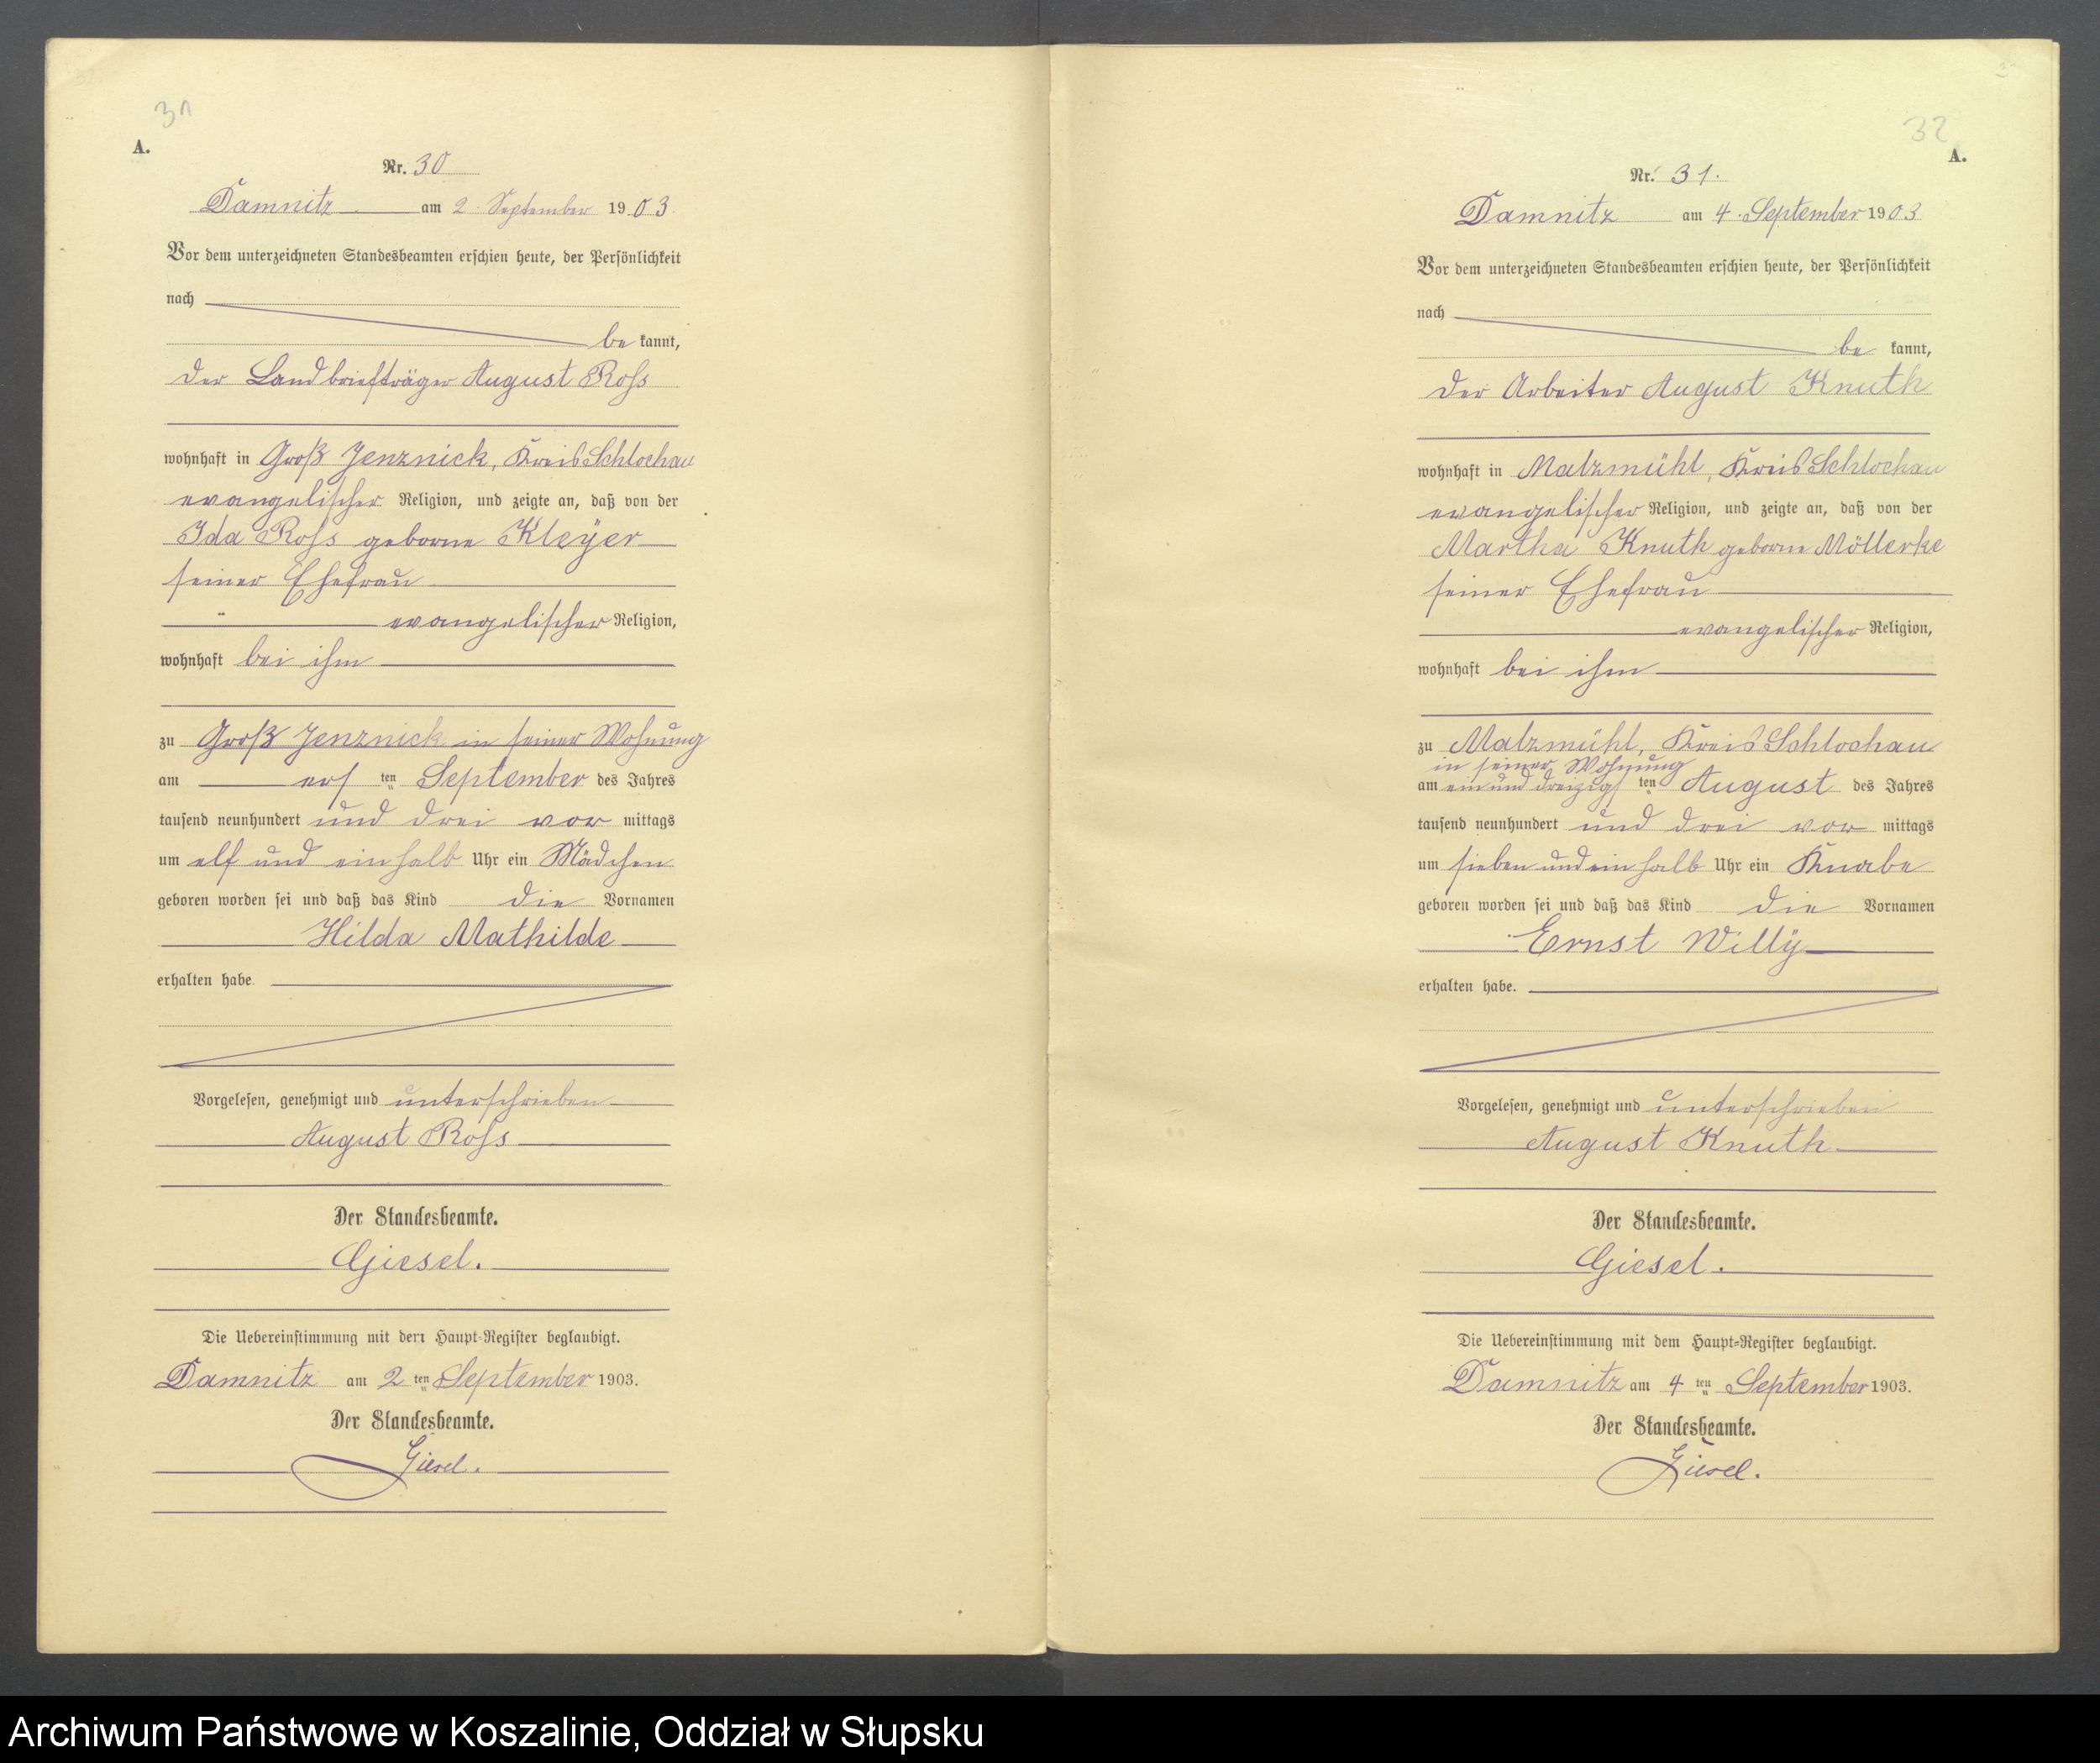 31
A.
Nr. 30
Damnitz am 2. September 1903.
Vor dem unterzeichneten Standesbeamten erschien heute, der Persönlichkeit
nach
be kannt,
der Landbriefträger August Roß
wohnhaft in Groß Jenznick, Kreis Schlochau
evangelischer Religion, und zeigte an, daß von der
Ida Roß geborne Kleÿer
seiner Ehefrau
evangelischer Religion,
wohnhaft bei ihm
zu Groß Jenznick in seiner Wohnung
am ersten September des Jahres
tausend neunhundert und drei vor mittags
um elf und einhalb Uhr ein Mädchen
geboren worden sei und daß das Kind die Vornamen
Hilda Mathilde
erhalten habe.
Vorgelesen, genehmigt und unterschrieben
August Roß
Der Standesbeamte.
Giesel.
Die Uebereinstimmung mit dem Haupt-Register beglaubigt.
Damnitz am 2 ten September 1903.
Der Standesbeamte.
Giesel.
32
A.
Nr. 31.
Damnitz am 4. September 1903
Vor dem unterzeichneten Standesbeamten erschien heute, der Persönlichkeit
nach
be kannt,
der Arbeiter August Knuth
wohnhaft in Malzmühl, Kreis Schlochau
evangelischer Religion, und zeigte an, daß von der
Martha Knuth geborne Möllerke
seiner Ehefrau
evangelischer Religion,
wohnhaft bei ihm
zu Malzmühl, Kreis Schlochau
in seiner Wohnung
am ein und dreizigsten August des Jahres
tausend neunhundert und drei vor mittags
um sieben und ein halb Uhr ein Knabe
geboren worden sei und daß das Kind die Vornamen
Ernst Willÿ
erhalten habe.
Vorgelesen, genehmigt und unterschrieben
August Knuth
Der Standesbeamte.
Giesel.
Die Uebereinstimmung mit dem Haupt-Register beglaubigt.
Damnitz am 4 ten September 1903.
Der Standesbeamte.
Giesel.
Archiwum Państwowe w Koszalinie, Oddział w Słupsku